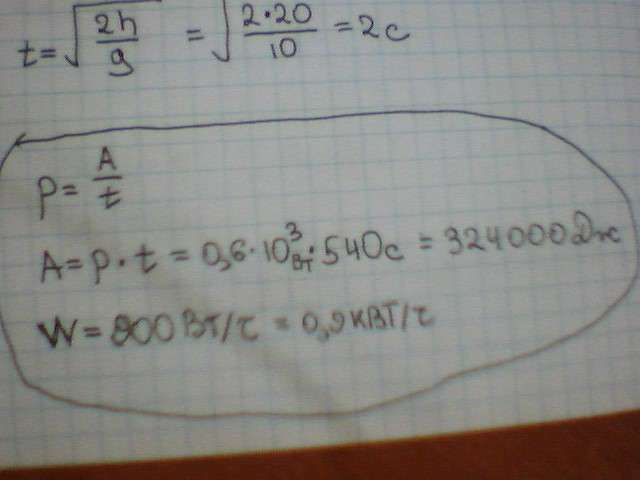 t = √(2h/g) = √(2·20/10) = 2с
p = A/t
A = p·t = 0,6·10³ Вт·540с = 324000 Дж
W = 900 Вт/г = 0,9 кВт/г